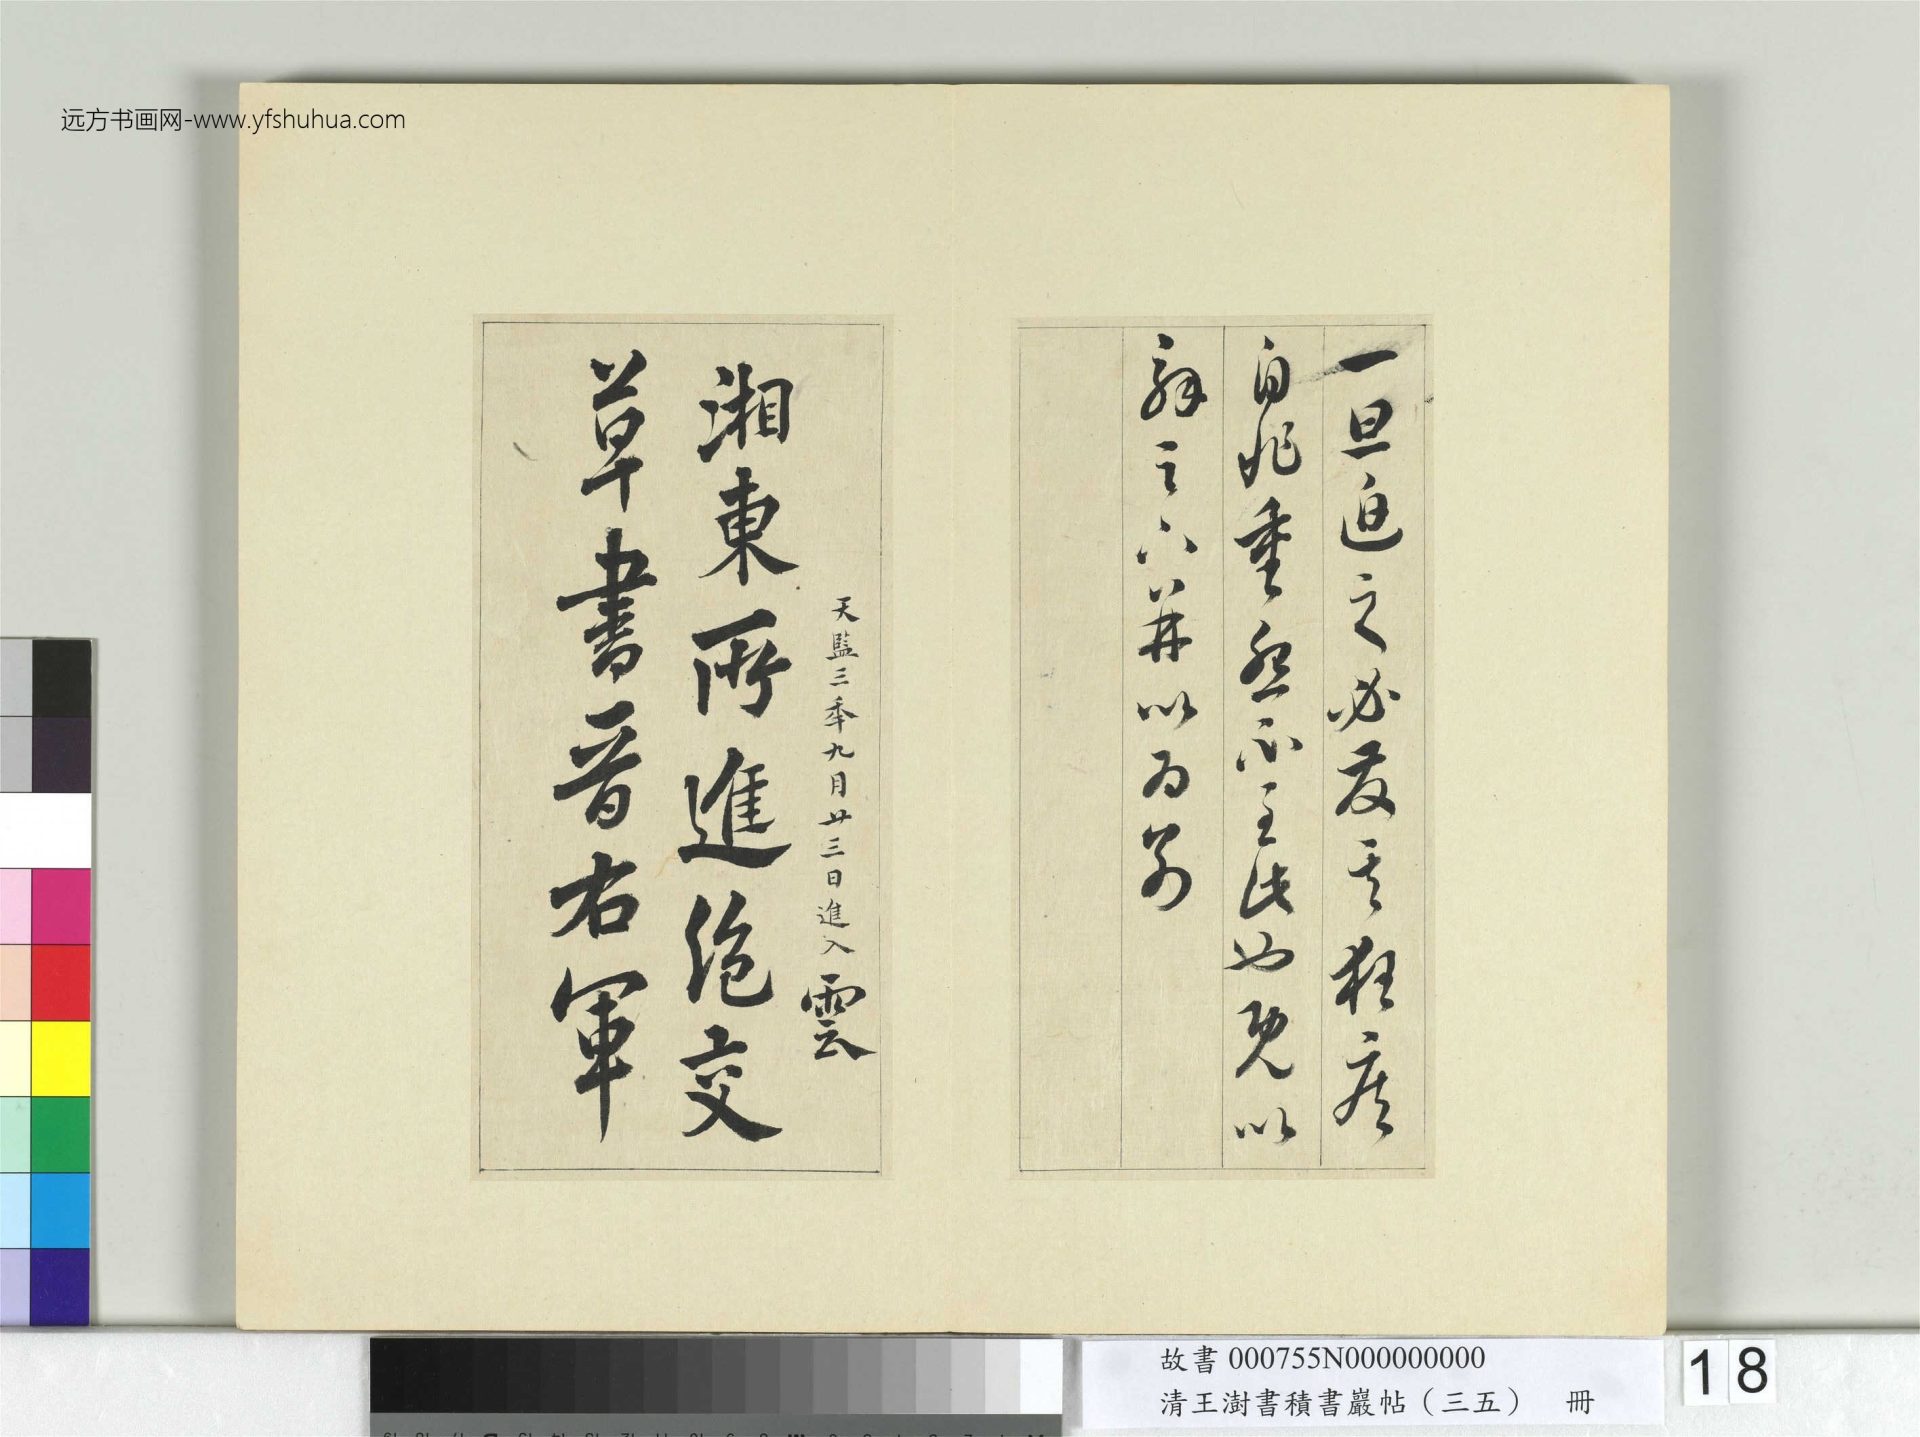 远方书画网-www.yfshuhua.com
一旦迫之必發其狂疾
自非重怨不至此也既以
解足下并以為別
天監三年九月廿三日進入 雲
湘東所進絕交
草書晉右軍
故書 000755N000000000
清王澍書積書巖帖（三五） 冊
18